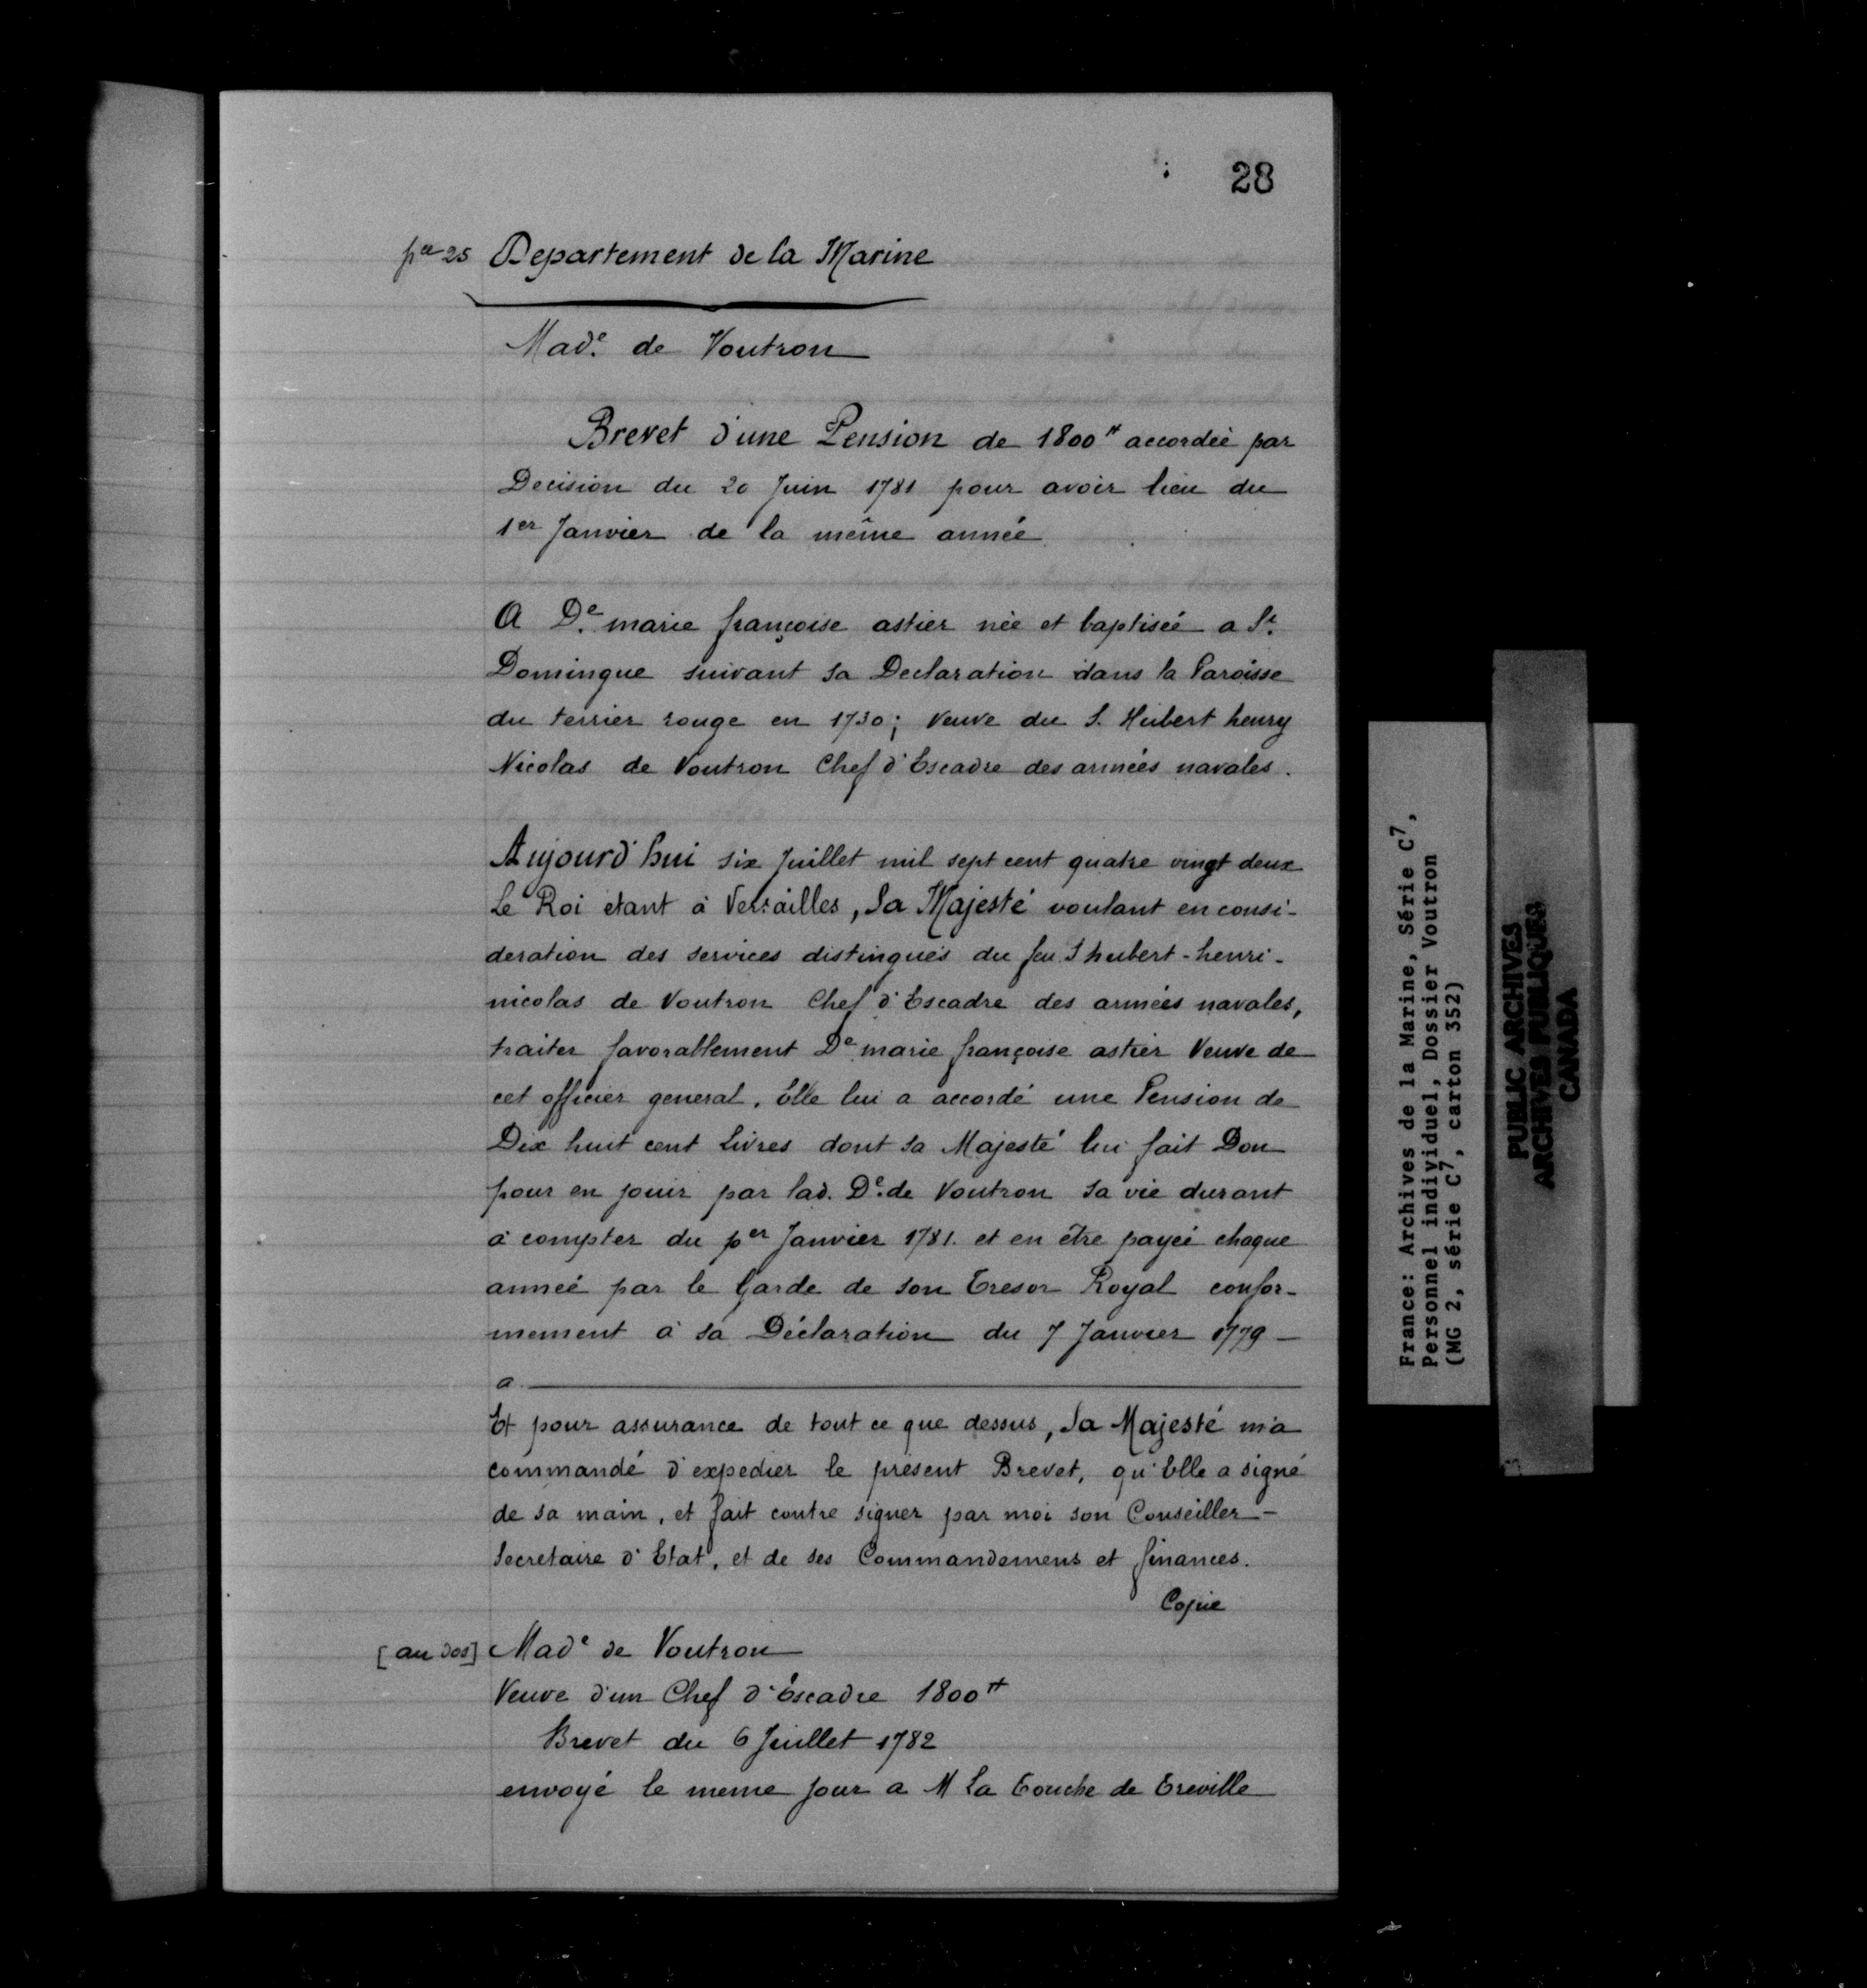 28
pce 25 Departement de la Marine
Made. de Voutron
Brevet d'une Pension de 1800# accordée par
Decision du 20 Juin 1781 pour avoir lieu du
1er Janvier de la même année
A De. marie françoise astier née et baptisée a St.
Domingue suivant sa Declaration dans la Paroisse
du terrier rouge en 1730; Veuve du S. Hubert henry
Nicolas de Voutron Chef d'Escadre des armées navales.
Aujourd'hui six Juillet mil sept cent quatre vingt deux
Le Roi etant à Versailles, Sa Majesté voulant en consi-
deration des services distingués du feu S hubert-henri-
nicolas de Voutron Chef d'Escadre des armées navales,
traiter favorablement De marie françoise astier Veuve de
cet officier general. Elle lui a accordé une Pension de
Dix huit cent Livres dont sa Majesté lui fait Don
pour en jouir par lad. De. de Voutron sa vie durant
à compter du per Janvier 1781. et en être payée chaque
année par le Garde de son Tresor Royal confor-
mement à sa Déclaration du 7 Janvier 1779 —
a
Et pour assurance de tout ce que dessus, Sa Majesté m'a
commandé d'expedier le présent Brevet, qu'Elle a signé
de sa main, et fait contre signer par moi son Conseiller -
Secretaire d'Etat, et de ses Commandemens et finances.
Copie
[au dos] Made de Voutron
Veuve d'un Chef d'Escadre 1800#
Brevet du 6 Juillet 1782
envoyé le meme jour a M La Touche de Treville
France: Archives de la Marine, Série C7,
Personnel individuel, Dossier Voutron
(MG 2, série C7, carton 352)
PUBLIC ARCHIVES
ARCHIVES PUBLIQUES
CANADA